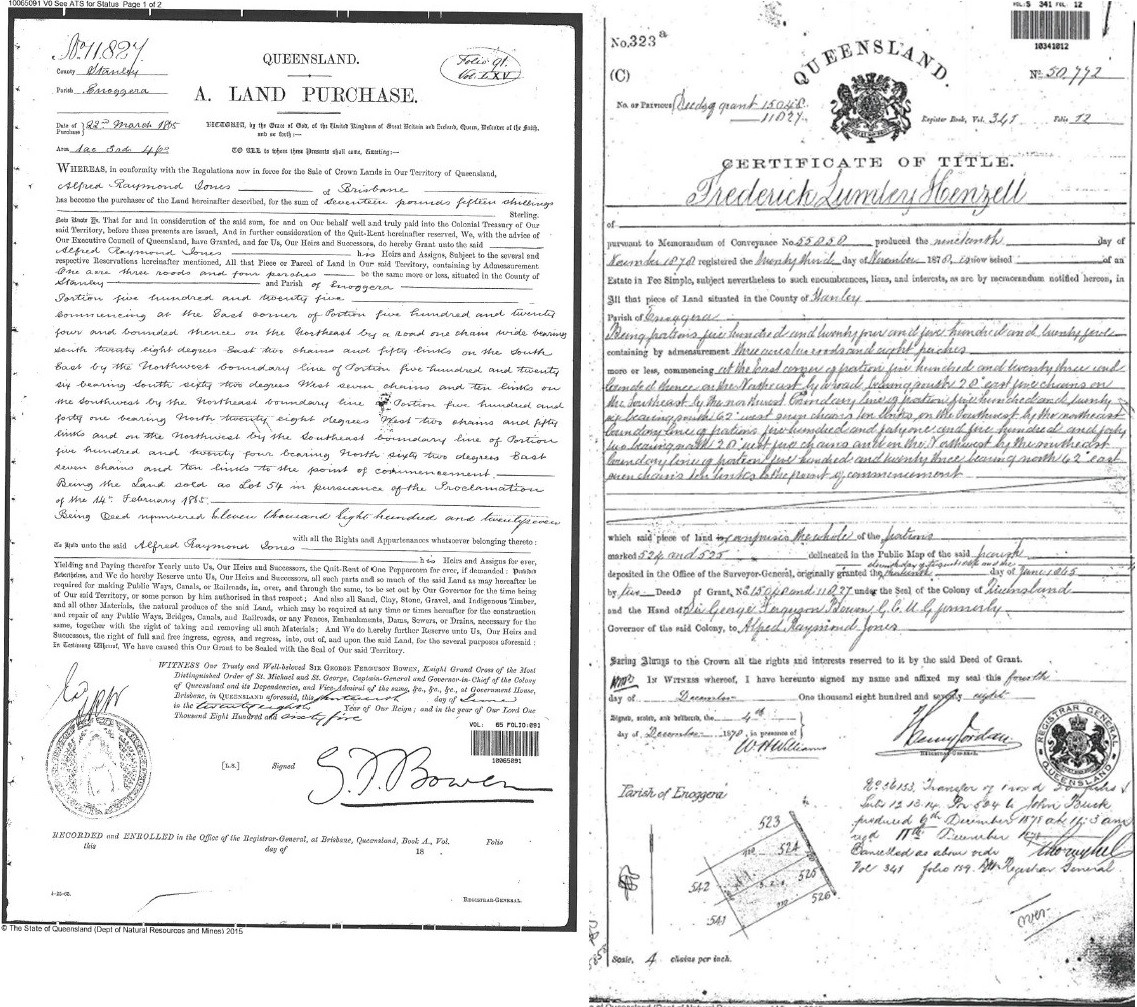 10065091 V0 See ATS for Status Page 1 of 2
No. 11827
County Stanley
Parish Enoggera
QUEENSLAND.
Folio 91.
Vol. LXV.
A. LAND PURCHASE.
Date of Purchase } 22nd March 1865
Area 1ac 3rds 4ps
VICTORIA, by the Grace of God, of the United Kingdom of Great Britain and Ireland, Queen, Defender of the Faith,
and so forth:—
TO ALL to whom these Presents shall come, Greeting:—
WHEREAS, in conformity with the Regulations now in force for the Sale of Crown Lands in Our Territory of Queensland,
Alfred Raymond Jones of Brisbane
has become the purchaser of the Land hereinafter described, for the sum of Seventeen pounds fifteen shillings
Sterling.
Now Know Ye, That for and in consideration of the said sum, for and on Our behalf well and truly paid into the Colonial Treasury of Our
said Territory, before these presents are issued, And in further consideration of the Quit-Rent hereinafter reserved, We, with the advice of
Our Executive Council of Queensland, have Granted, and for Us, Our Heirs and Successors, do hereby Grant unto the said
Alfred Raymond Jones his Heirs and Assigns, Subject to the several and
respective Reservations hereinafter mentioned, All that Piece or Parcel of Land in Our said Territory, containing by Admeasurement
One acre three roods and four perches be the same more or less, situated in the County of
Stanley and Parish of Enoggera
Portion five hundred and twenty five
Commencing at the East corner of Portion five hundred and twenty
four and bounded thence on the Northeast by a road one chain wide bearing
South twenty eight degrees East two chains and fifty links on the South
East by the Northwest boundary line of Portion five hundred and twenty
six bearing South sixty two degrees West seven chains and ten links on
the Southwest by the Northeast boundary line of Portion five hundred and
forty one bearing North twenty eight degrees West two chains and fifty
links and on the Northwest by the Southeast boundary line of Portion
five hundred and twenty four bearing North sixty two degrees East
seven chains and ten links to the point of commencement
Being the Land sold as Lot 54 in pursuance of the Proclamation
of the 14th February 1865.
Being Deed numbered Eleven thousand Eight hundred and twenty seven
with all the Rights and Appurtenances whatsoever belonging thereto:
To Hold unto the said Alfred Raymond Jones
his Heirs and Assigns for ever,
Yielding and Paying therefor Yearly unto Us, Our Heirs and Successors, the Quit-Rent of One Peppercorn for ever, if demanded: Provided
Nevertheless, and We do hereby Reserve unto Us, Our Heirs and Successors, all such parts and so much of the said Land as may hereafter be
required for making Public Ways, Canals, or Railroads, in, over, and through the same, to be set out by Our Governor for the time being
of Our said Territory, or some person by him authorised in that respect; And also all Sand, Clay, Stone, Gravel, and Indigenous Timber,
and all other Materials, the natural produce of the said Land, which may be required at any time or times hereafter for the construction
and repair of any Public Ways, Bridges, Canals, and Railroads, or any Fences, Embankments, Dams, Sewers, or Drains, necessary for the
same, together with the right of taking and removing all such Materials; And We do hereby further Reserve unto Us, Our Heirs and
Successors, the right of full and free ingress, egress, and regress, into, out of, and upon the said Land, for the several purposes aforesaid:
In Testimony Whereof, We have caused this Our Grant to be Sealed with the Seal of Our said Territory.
WITNESS Our Trusty and Well-beloved SIR GEORGE FERGUSON BOWEN, Knight Grand Cross of the Most
Distinguished Order of St. Michael and St. George, Captain-General and Governor-in-Chief of the Colony
of Queensland and its Dependencies, and Vice-Admiral of the same, &c., &c., &c., at Government House,
Brisbane, in QUEENSLAND aforesaid, this thirteenth day of June
in the twenty eighth Year of Our Reign; and in the year of Our Lord One
Thousand Eight Hundred and sixty five
VOL: 65 FOLIO:091
10065091
[L.S.] Signed G. F. Bowen
RECORDED and ENROLLED in the Office of the Registrar-General, at Brisbane, Queensland, Book A., Vol. Folio
this day of 18 .
REGISTRAR-GENERAL.
© The State of Queensland (Dept of Natural Resources and Mines) 2015
VOL:S 341 FOL: 12
10341012
No. 323a
(C)
QUEENSLAND.
No. 50,772
No. of Previous Deeds of grant 15048.
11827.
Register Book, Vol. 341 Folio 12
CERTIFICATE OF TITLE.
Frederick Lumley Henzell
of
pursuant to Memorandum of Conveyance No. 55050 produced the nineteenth day of
November 1878 registered the twenty third day of November 1878, is now seised of an
Estate in Fee Simple, subject nevertheless to such encumbrances, liens, and interests, as are by memorandum notified hereon, in
All that piece of Land situated in the County of Stanley
Parish of Enoggera
Being portions five hundred and twenty four and five hundred and twenty five
containing by admeasurement three acres two roods and eight perches
more or less, commencing at the East corner of portion five hundred and twenty three and
bounded thence on the Northeast by a road bearing south 28° east five chains on
the Southeast by the northwest boundary line of portion five hundred and twenty
six bearing south 62° west seven chains ten links on the Southwest by the northeast
boundary line of portions five hundred and forty one and five hundred and forty
two bearing north 28° west five chains and on the Northwest by the southeast
boundary line of portion five hundred and twenty three bearing north 62° east
seven chains ten links to the point of commencement
which said piece of land is comprises the whole of the portions
marked 524 and 525 delineated in the Public Map of the said parish
deposited in the Office of the Surveyor-General, originally granted the thirteenth day of June 1865
by five Deeds of Grant, No. 15048 and 11827 under the Seal of the Colony of Queensland
and the Hand of Sir George Ferguson Bowen G.C.M.G. formerly
Governor of the said Colony, to Alfred Raymond Jones
Saving Always to the Crown all the rights and interests reserved to it by the said Deed of Grant.
IN WITNESS whereof, I have hereunto signed my name and affixed my seal this fourth
day of December One thousand eight hundred and seventy eight
Signed, sealed, and delivered, the 4th
day of December 1878, in presence of
W H Williams
Henry Jordan
REGISTRAR-GENERAL.
REGISTRAR GENERAL
QUEENSLAND
Parish of Enoggera
523
524
525
526
542
541
No 56153, Transfer of
Subs 12.13.14. Por 524 to John Buck
produced 9th December 1878 at 11.3 am
11th December 1878
Cancelled as above
Vol 341 folio 159. Registrar General
over
Scale, 4 chains per inch.